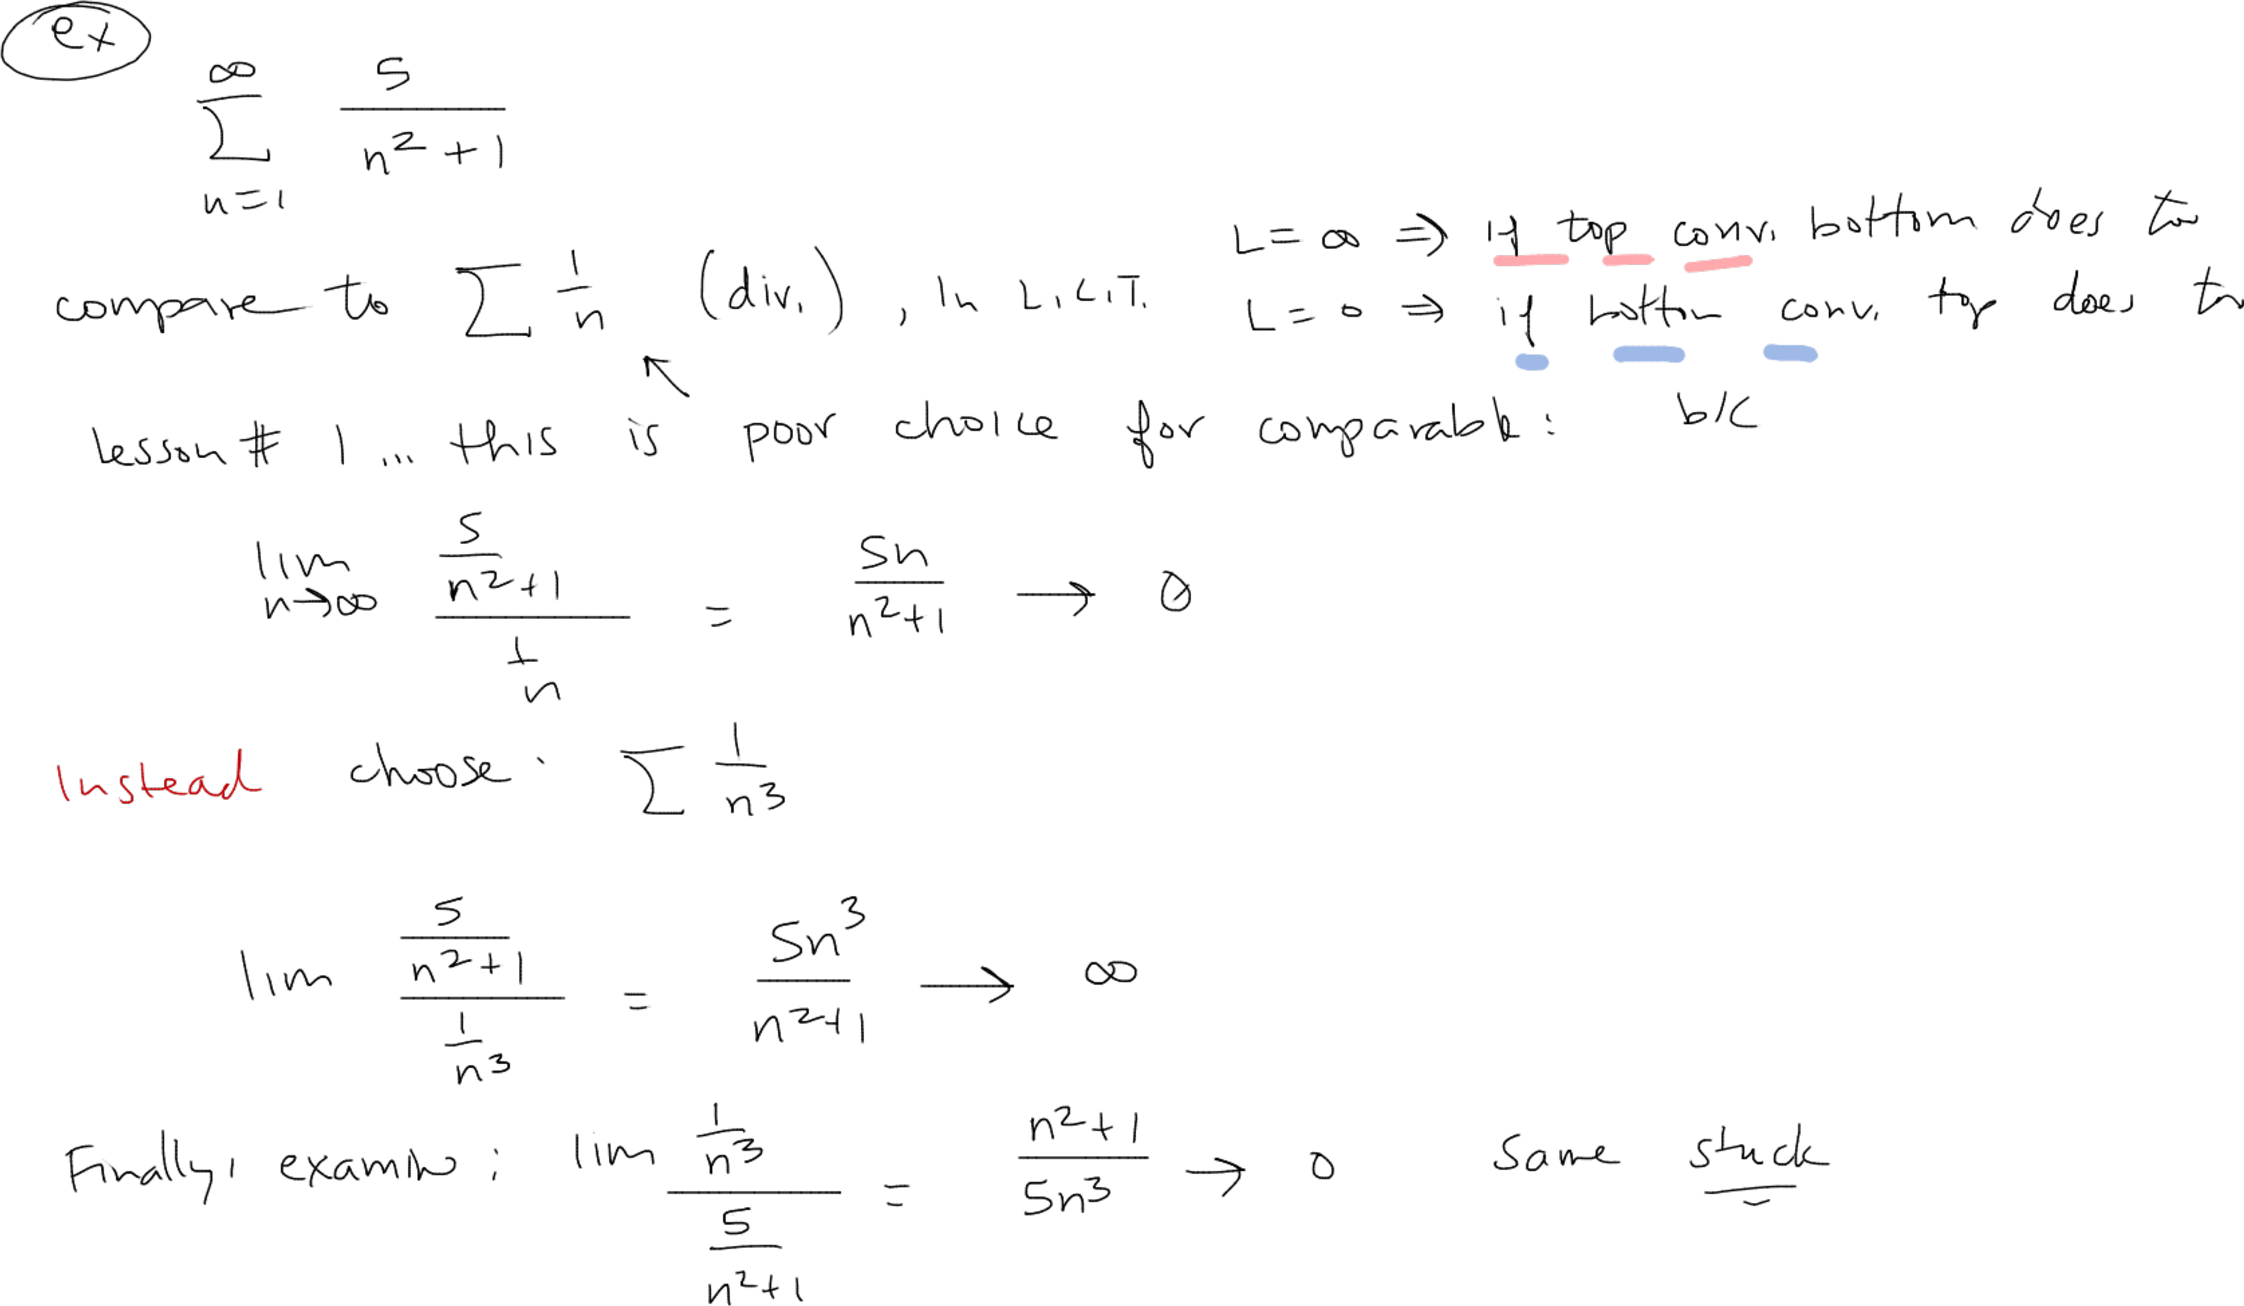 ex
∞ ∑ n=1 5/(n²+1)
L = ∞ ⇒ if top conv. bottom does too
compare to ∑ 1/n (div.), In L.C.T. L = 0 ⇒ if bottom conv. top does too
↖
Lesson # 1 ... this is poor choice for comparable: b/c
lim n→∞ (5/(n²+1))/(1/n) = 5n/(n²+1) → 0
Instead choose: ∑ 1/n³
lim (5/(n²+1))/(1/n³) = 5n³/(n²+1) → ∞
Finally, examine: lim (1/n³)/(5/(n²+1)) = (n²+1)/(5n³) → 0 Same stuck